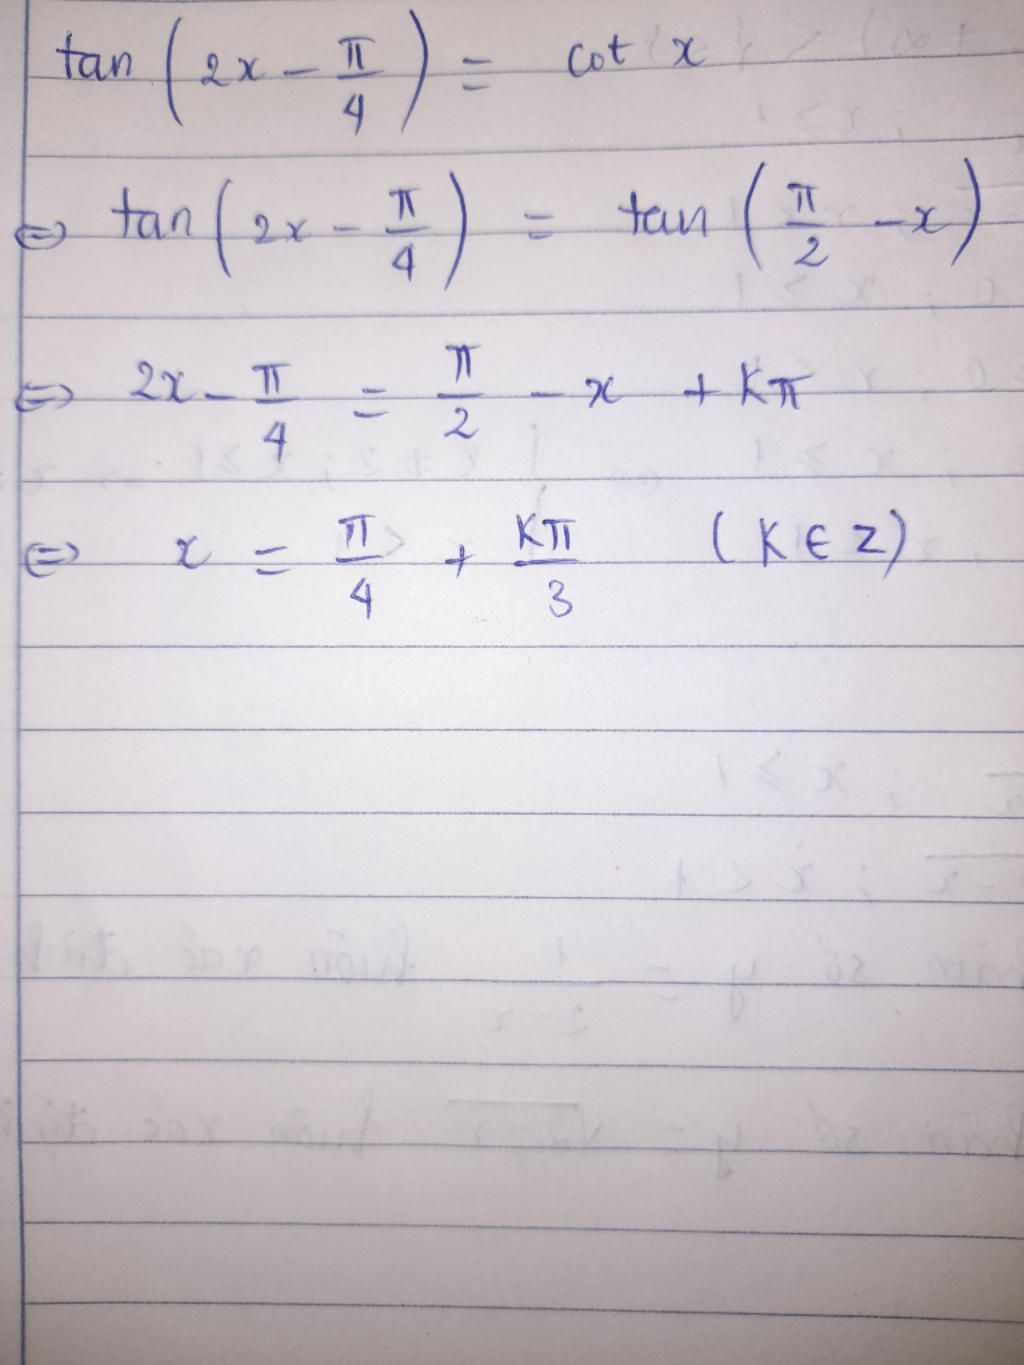 tan ( 2x - π/4 ) = cot x
⇔ tan ( 2x - π/4 ) = tan ( π/2 - x )
⇔ 2x - π/4 = π/2 - x + Kπ
⇔ x = π/4 + Kπ/3 ( K ∈ Z )